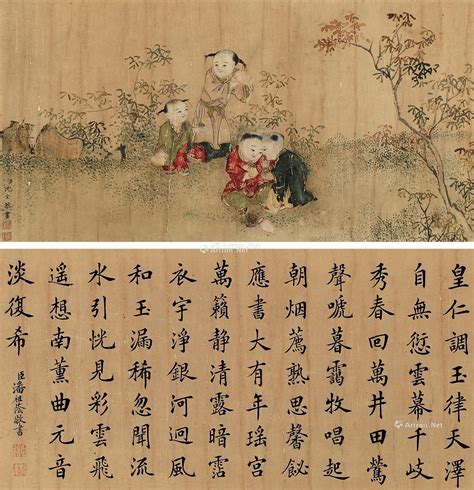 皇仁調玉律天澤
自無愆雲幕千岐
秀春回萬井田鶯
聲嗁暮靄牧唱起
朝烟薦熟思馨飶
應書大有年瑤宮
萬籟靜清露暗霑
衣宇淨銀河迥風
和玉漏稀忽聞流
水引恍見彩雲飛
遙想南薰曲元音
淡復希
臣潘祖蔭敬書